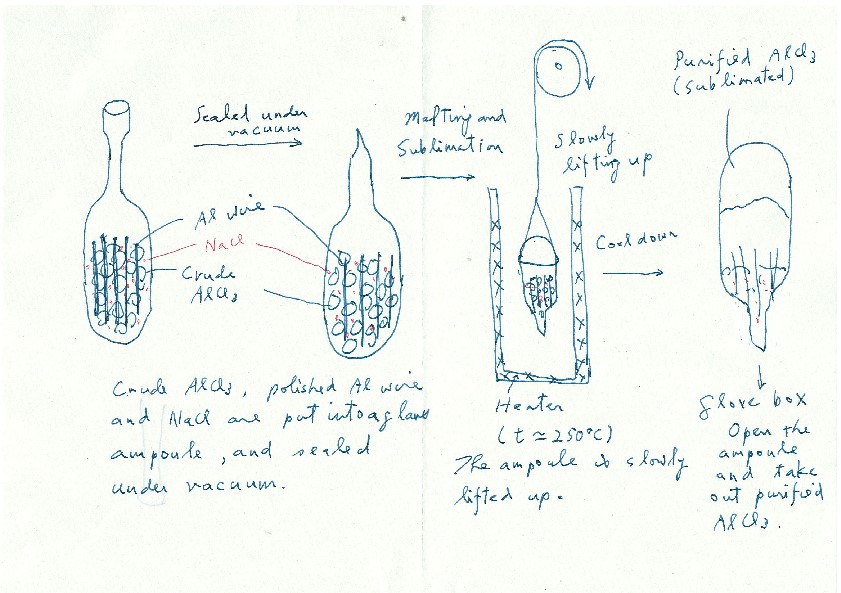 Sealed under
vacuum
Al wire
NaCl
Crude
AlCl3
Crude AlCl3, polished Al wire
and NaCl are put into a glass
ampoule, and sealed
under vacuum.
Malting and
Sublimation
Slowly
lifting up
Heater
(t ≃ 250°C)
The ampoule is slowly
lifted up.
Cool down
Purified AlCl3
(Sublimated)
Glove box
Open the
ampoule
and take
out purified
AlCl3.